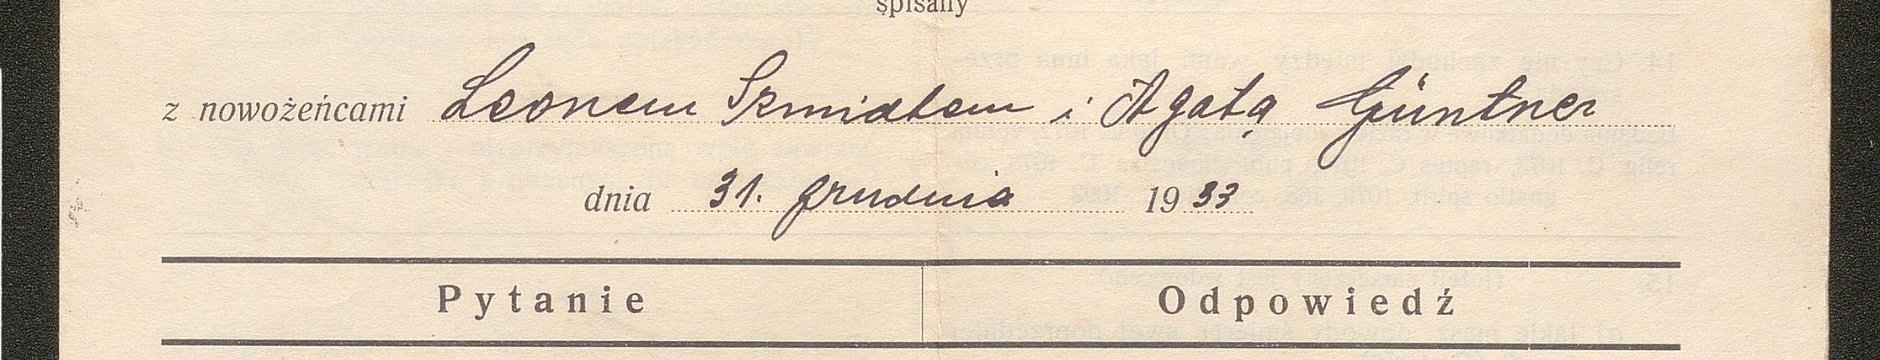 spisany
z nowożeńcami Leonem Szmidtem i Agatą Güntner
dnia 31. grudnia 1933
Pytanie Odpowiedź